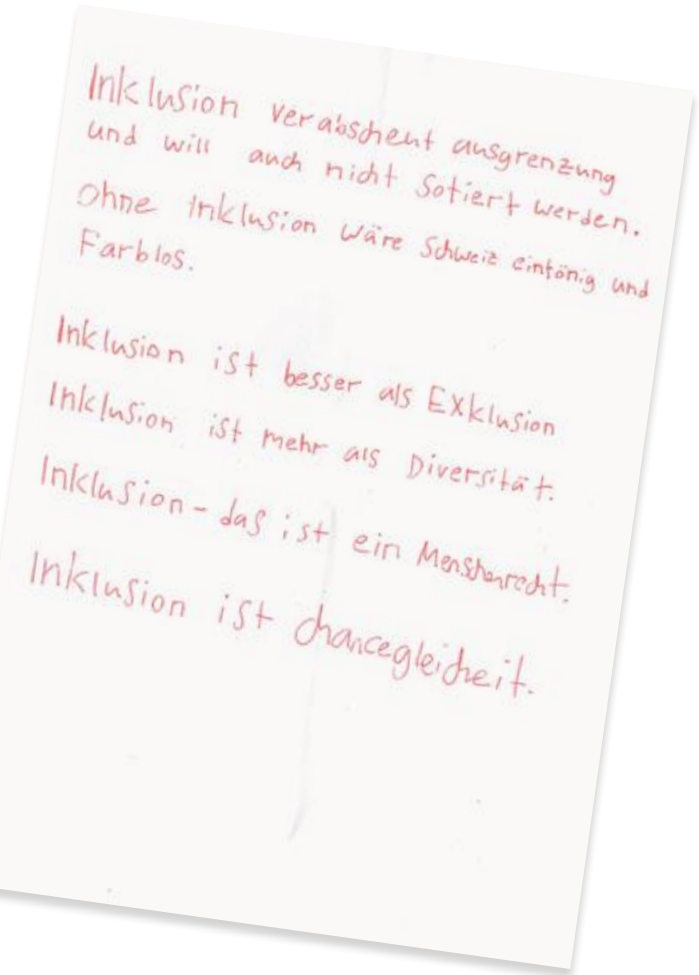 Inklusion verabscheut ausgrenzung
und will auch nicht Sotiert werden.
Ohne Inklusion wäre Schweiz eintönig und
Farblos.
Inklusion ist besser als EXklusion
Inklusion ist mehr als Diversität.
Inklusion - das ist ein Menshenrecht.
Inklusion ist chancegleicheit.